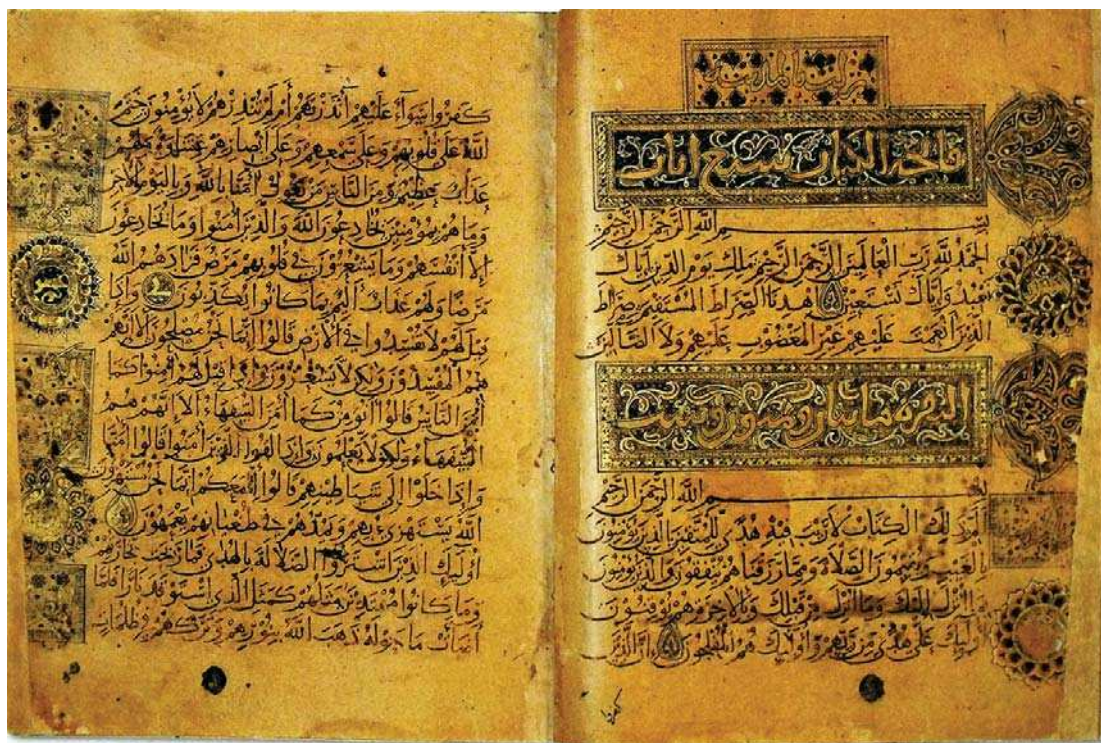 فاتحة الكتاب سبع ايات
بسم الله الرحمن الرحيم
الحمد لله رب العالمين الرحمن الرحيم ملك يوم الدين اياك
نعبد واياك نستعين اهدنا الصراط المستقيم صراط
الذين انعمت عليهم غير المغضوب عليهم ولا الضالين
البقرة مايتان وثمنون وست
بسم الله الرحمن الرحيم
الم ذلك الكتاب لا ريب فيه هدى للمتقين الذين يؤمنون
بالغيب ويقيمون الصلاة ومما رزقناهم ينفقون والذين يؤمنون
بما انزل اليك وما انزل من قبلك وبالاخرة هم يوقنون
اوليك على هدى من ربهم واوليك هم المفلحون ان الذين
كفروا سواء عليهم أنذرتهم أم لم تنذرهم لا يؤمنون ختم
الله على قلوبهم وعلى سمعهم وعلى أبصارهم غشاوة ولهم
عذاب عظيم ومن الناس من يقول آمنا بالله وباليوم الآخر
وما هم بمؤمنين يخادعون الله والذين امنوا وما يخادعون
إلا أنفسهم وما يشعرون في قلوبهم مرض فزادهم الله
مرضا ولهم عذاب اليم بما كانوا يكذبون وإذا
قيل لهم لا تفسدوا في الأرض قالوا إنما نحن مصلحون ألا إنهم
هم المفسدون ولكن لا يشعرون وإذا قيل لهم امنوا كما
آمن الناس قالوا أنؤمن كما آمن السفهاء ألا إنهم هم
السفهاء ولكن لا يعلمون وإذا لقوا الذين امنوا قالوا آمنا
وإذا خلوا إلى شياطينهم قالوا إنا معكم إنما نحن مستهزؤن
الله يستهزئ بهم ويمدهم في طغيانهم يعمهون
أوليك الذين اشتروا الضلالة بالهدى فما ربحت تجارتهم
وما كانوا مهتدين مثلهم كمثل الذي استوقد نارا فلما
أضاءت ما حوله ذهب الله بنورهم وتركهم في ظلمات